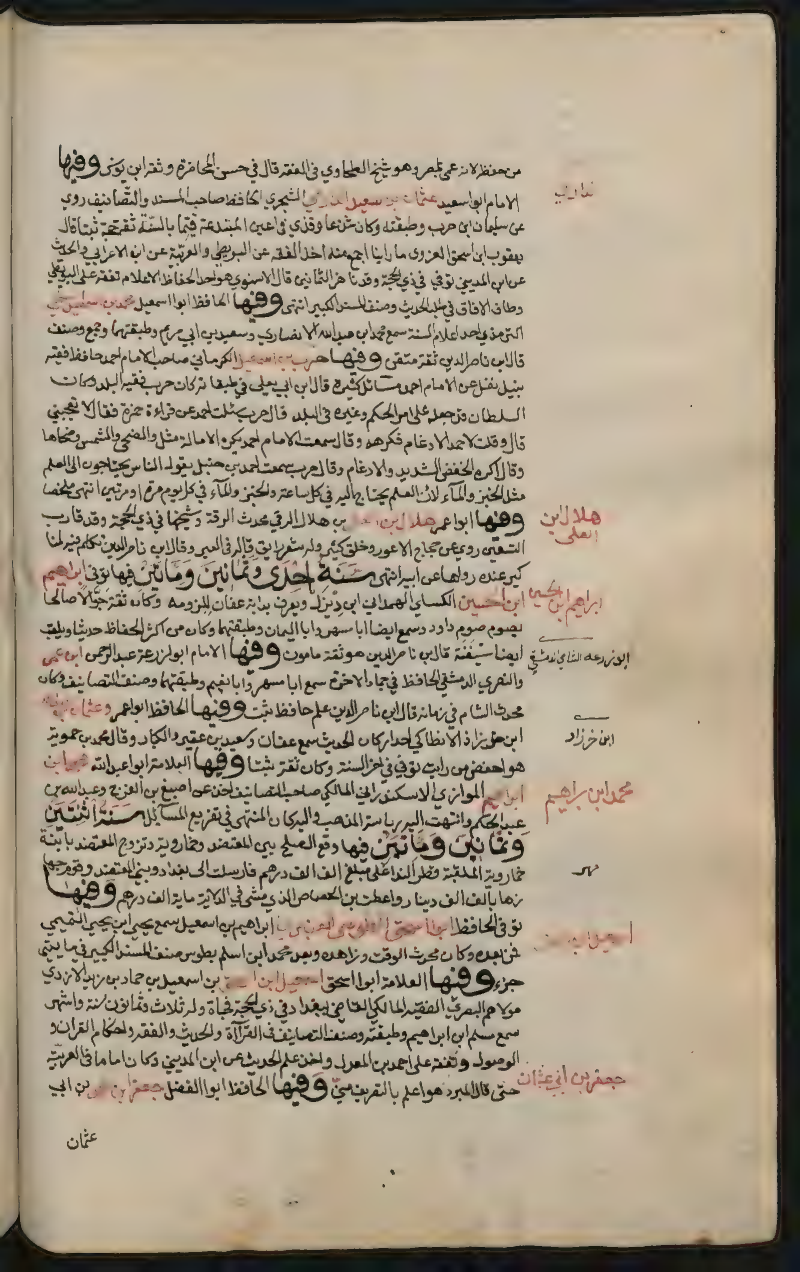 من حفظ لانه عمى بمصر وهو شيخ الطحاوي في الفقه قال في حسن المحاضرة وثقه ابن يونس وفيها
الامام ابو اسعيد عثمان بن سعيد الدارمي الشجري الحافظ صاحب المسند والتصانيف روى
عن سليمان ابن حرب وطبقته وكان وقذى في اعين المبتدعة قيما بالسنة ثقة حجة ثبتا قال
يعقوب ابن اسحق ما راينا اجمع منه اخذ الفقه عن البويطي والعربية عن ابن الاعرابي والحديث
عن ابن المديني توفي في ذي الحجة وقد ناهز الثمانين قال الاسنوي هو احد الحفاظ الاعلام تفقه على البويطي
وطاف الافاق في طلب الحديث وصنف المسند الكبير انتهى وفيها الحافظ ابو اسمعيل محمد بن
الترمذي احد اعلام السنة سمع محمد ابن عبد الله الانصاري وسعيد بن ابي مريم وطبقتهما وجمع وصنف
قال ابن ناصر الدين ثقة متقن وفيها حرب بن اسمعيل الكرماني صاحب الامام احمد حافظ فقيه
نبيل نقل عن الامام احمد مسائل كثيرة قال ابن ابي يعلى في طبقاته كان حرب فقيه البلد وكان
السلطان قد جعله على امر الحكم وغيره في البلد قال حرب سئلت احمد عن قراءة حمزة فقال لا تعجبني
قال وقلت لاحمد الادغام فكرهه وقال سمعت الامام احمد يكره الامالة مثل والضحى والشمس وضحاها
وقال اكره الخفض الشديد والادغام وقال حرب سمعت احمد بن حنبل يقول الناس يحتاجون الى العلم
مثل الخبز والماء لان العلم يحتاج اليه في كل ساعة والخبز والماء في كل يوم مرة او مرتين انتهى ملخصا
وفيها ابو اعمر هلال ابن العلى بن هلال الرقي محدث الرقة وشيخها في ذي الحجة وقد قارب
التسعين روى عن حجاج الاعور وخلق كثير وله شعر رايق قاله في العبر وقال ابن ناصر الدين
كبير عنده رواها عن ابيه انتهى سنة احدى وثمانين ومائتين فيها توفي ابراهيم
ابن الحسين الكسائي الهمداني ابن ديزيل ويعرف بدابة عفان للزومه وكان ثقة جوالا صالحا
يصوم صوم داود وسمع ايضا ابا مسهر وابا اليمان وطبقتهما وكان من اكثر الحفاظ حديثا ويلقب
ايضا سيفنة قال بن ناصر الدين هو ثقة مامون وفيها الامام ابو ازرعة عبد الرحمن ابن عمرو
والنصري الدمشقي الحافظ في جماد الاخرة سمع ابا مسهر وابا نعيم وطبقتهما وصنف التصانيف وكان
محدث الشام في زمانه قال ابن ناصر الدين علم حافظ ثبت وفيها الحافظ ابو اعمرو عثمان
ابن خرزاذ الانطاكي احد اركان الحديث سمع عفان وسعيد بن عفير والكبار وقال محمد بن حمويه
هو احفظ من رايت توفي في اخر السنة وكان ثقة ثبتا وفيها العلامة ابو اعبد الله محمد ابن
ابراهيم الموازي الاسكندراني المالكي صاحب التصانيف اخذ عن اصبغ بن الفرج وعبد الله بن
عبد الحكم وانتهت اليه رياسة المذهب واليه كان المنتهى في تفريع المسائل سنة اثنتين
وثمانين ومائتين فيها وقع الصلح بين المعتضد وخمارويه وتزوج المعتضد بابنة
خمارويه على مبلغ الف الف درهم فارسلت الى بغداد وبنى المعتضد وقوم جهازها
بالف الف دينار واعطت ابن الجصاص الذي مشى في الدلالة ماية الف درهم وفيها
توفي الحافظ ابو اسحق ابراهيم بن اسمعيل سمع يحيى ابن يحيى التميمي
فمن بعده وكان محدث الوقت وزاهده وبعد محمد ابن اسلم بطوس صنف المسند الكبير في مايتي
جزء وفيها العلامة ابو اسحق اسمعيل ابن اسحق بن اسمعيل بن حماد بن زيد الازدي
مولاهم البصري الفقيه المالكي القاضي ببغداد في ذي الحجة فجاة وله ثلاث وثمانون سنة واشهر
سمع مسلم ابن ابراهيم وطبقته وصنف التصانيف في القرآآة والحديث والفقه واحكام القران و
الاصول وتفقه على احمد بن المعدل واخذ علم الحديث عن ابن المديني وكان اماما في العربية
حتى قال المبرد هو اعلم بالتصريف مني وفيها الحافظ ابو الفضل جعفر بن محمد بن ابي
عثمان
هلال ابن
العلى
ابراهيم بن الحسين
ابو زرعه الشامي الدمشقي
ابن خرزاد
محمد ابن براهيم
جعفر بن ابي عثمان